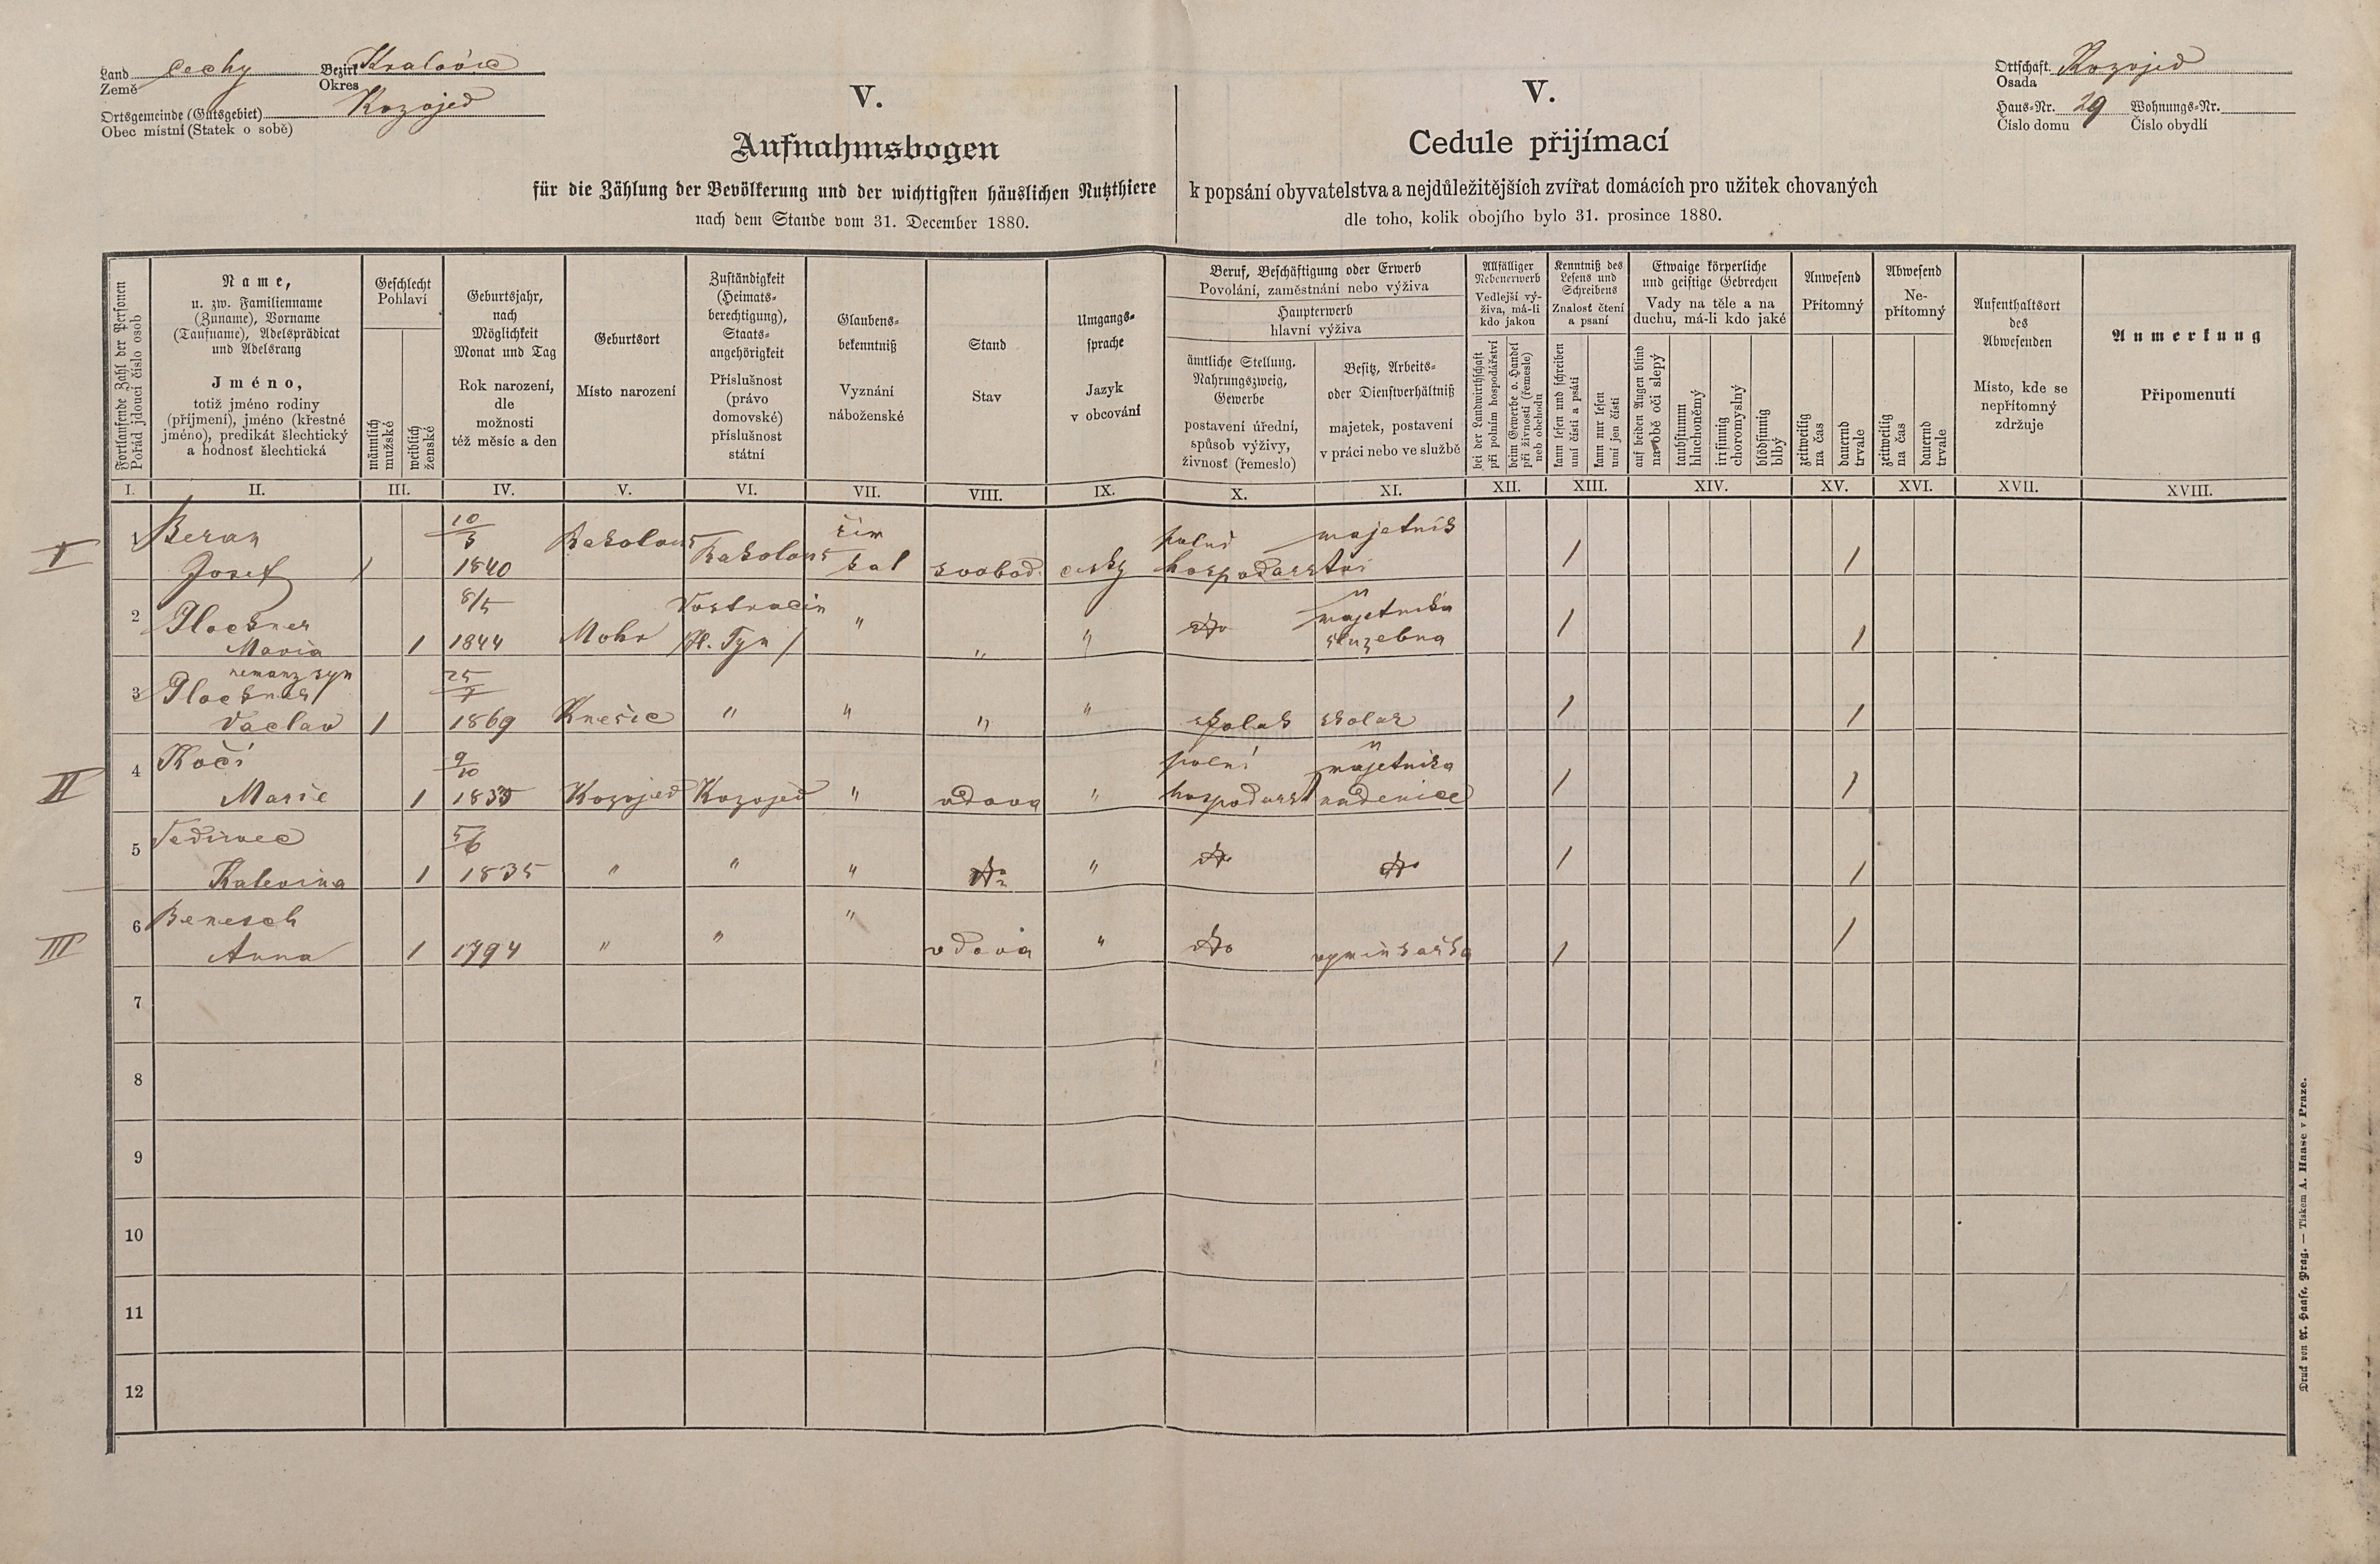 Land Čechy Bezirk Kralovic
Země Okres
Ortsgemeinde (Gutsgebiet) Kozojed
Obec místní (Statek o sobě)
Ortschaft Kozojed
Osada
Haus-Nr. 29 Wohnungs-Nr.
Číslo domu Číslo obydlí
V.
Aufnahmsbogen
für die Zählung der Bevölkerung und der wichtigsten häuslichen Nutzthiere
nach dem Stande vom 31. December 1880.
V.
Cedule přijímací
k popsání obyvatelstva a nejdůležitějších zvířat domácích pro užitek chovaných
dle toho, kolik obojího bylo 31. prosince 1880.
Fortlaufende Zahl der Personen
Pořád jdoucí číslo osob
Name,
u. zw. Familienname
(Zuname), Vorname
(Taufname), Adelsprädicat
und Adelsrang
Jméno,
totiž jméno rodiny
(příjmení), jméno (křestné
jméno), predikát šlechtický
a hodnosť šlechtická
Geschlecht
Pohlaví
männlich
mužské
weiblich
ženské
Geburtsjahr,
nach
Möglichkeit
Monat und Tag
Rok narození,
dle
možnosti
též měsíc a den
Geburtsort
Místo narození
Zuständigkeit
(Heimats-
berechtigung),
Staats-
angehörigkeit
Příslušnost
(právo
domovské)
příslušnost
státní
Glaubens-
bekenntniß
Vyznání
náboženské
Stand
Stav
Umgangs-
sprache
Jazyk
v obcování
Beruf, Beschäftigung oder Erwerb
Povolání, zaměstnání nebo výživa
Haupterwerb
hlavní výživa
ämtliche Stellung.
Nahrungszweig,
Gewerbe
postavení úřední,
spůsob výživy,
živnosť (řemeslo)
Besitz, Arbeits-
oder Dienstverhältniß
majetek, postavení
v práci nebo ve službě
Allfälliger
Nebenerwerb
Vedlejší vý-
živa, má-li
kdo jakou
bei der Landwirthschaft
při polním hospodářství
beim Gewerbe o. Handel
při živnosti (řemesle)
neb obchodu
Kenntniß des
Lesens und
Schreibens
Znalosť čtení
a psaní
kann lesen und schreiben
umí čísti a psáti
kann nur lesen
umí jen čísti
Etwaige körperliche
und geistige Gebrechen
Vady na těle a na
duchu, má-li kdo jaké
auf beiden Augen blind
na obě oči slepý
taubstumm
hluchoněmý
irrsinnig
choromyslný
blödsinnig
blbý
Anwesend
Přítomný
zeitweilig
na čas
dauernd
trvale
Abwesend
Ne-
přítomný
zeitweilig
na čas
dauernd
trvale
Aufenthaltsort
des
Abwesenden
Místo, kde se
nepřítomný
zdržuje
Anmerkung
Připomenutí
I. II. III. IV. V. VI. VII. VIII. IX. X. XI. XII. XIII. XIV. XV. XVI. XVII. XVIII.
I 1 Beran 10/5 řím polní majetník
Josef / 1840 kat svobod. česky hospodarství / /
2 Plockner 8/5
Maria 1 1844 Mohr /H. Tyn/ " " " do majetnika služebna / /
3 nemanž syn
Plockner 25/7
Vaclav 1 1869 Knežic " " " " školak školak / /
II 4 Kočí 9/10 polní majetnika
Marie 1 1835 Kozojed Kozojed " vdova " hospodarst nadenice / /
5 5/6
Katerina 1 1835 " " " do " do do / /
III 6 Benesch "
Anna 1 1794 " " vdova " do vyminkařka / /
7
8
9
10
11
12
Druck von A. Haase, Prag. — Tiskem A. Haase v Praze.